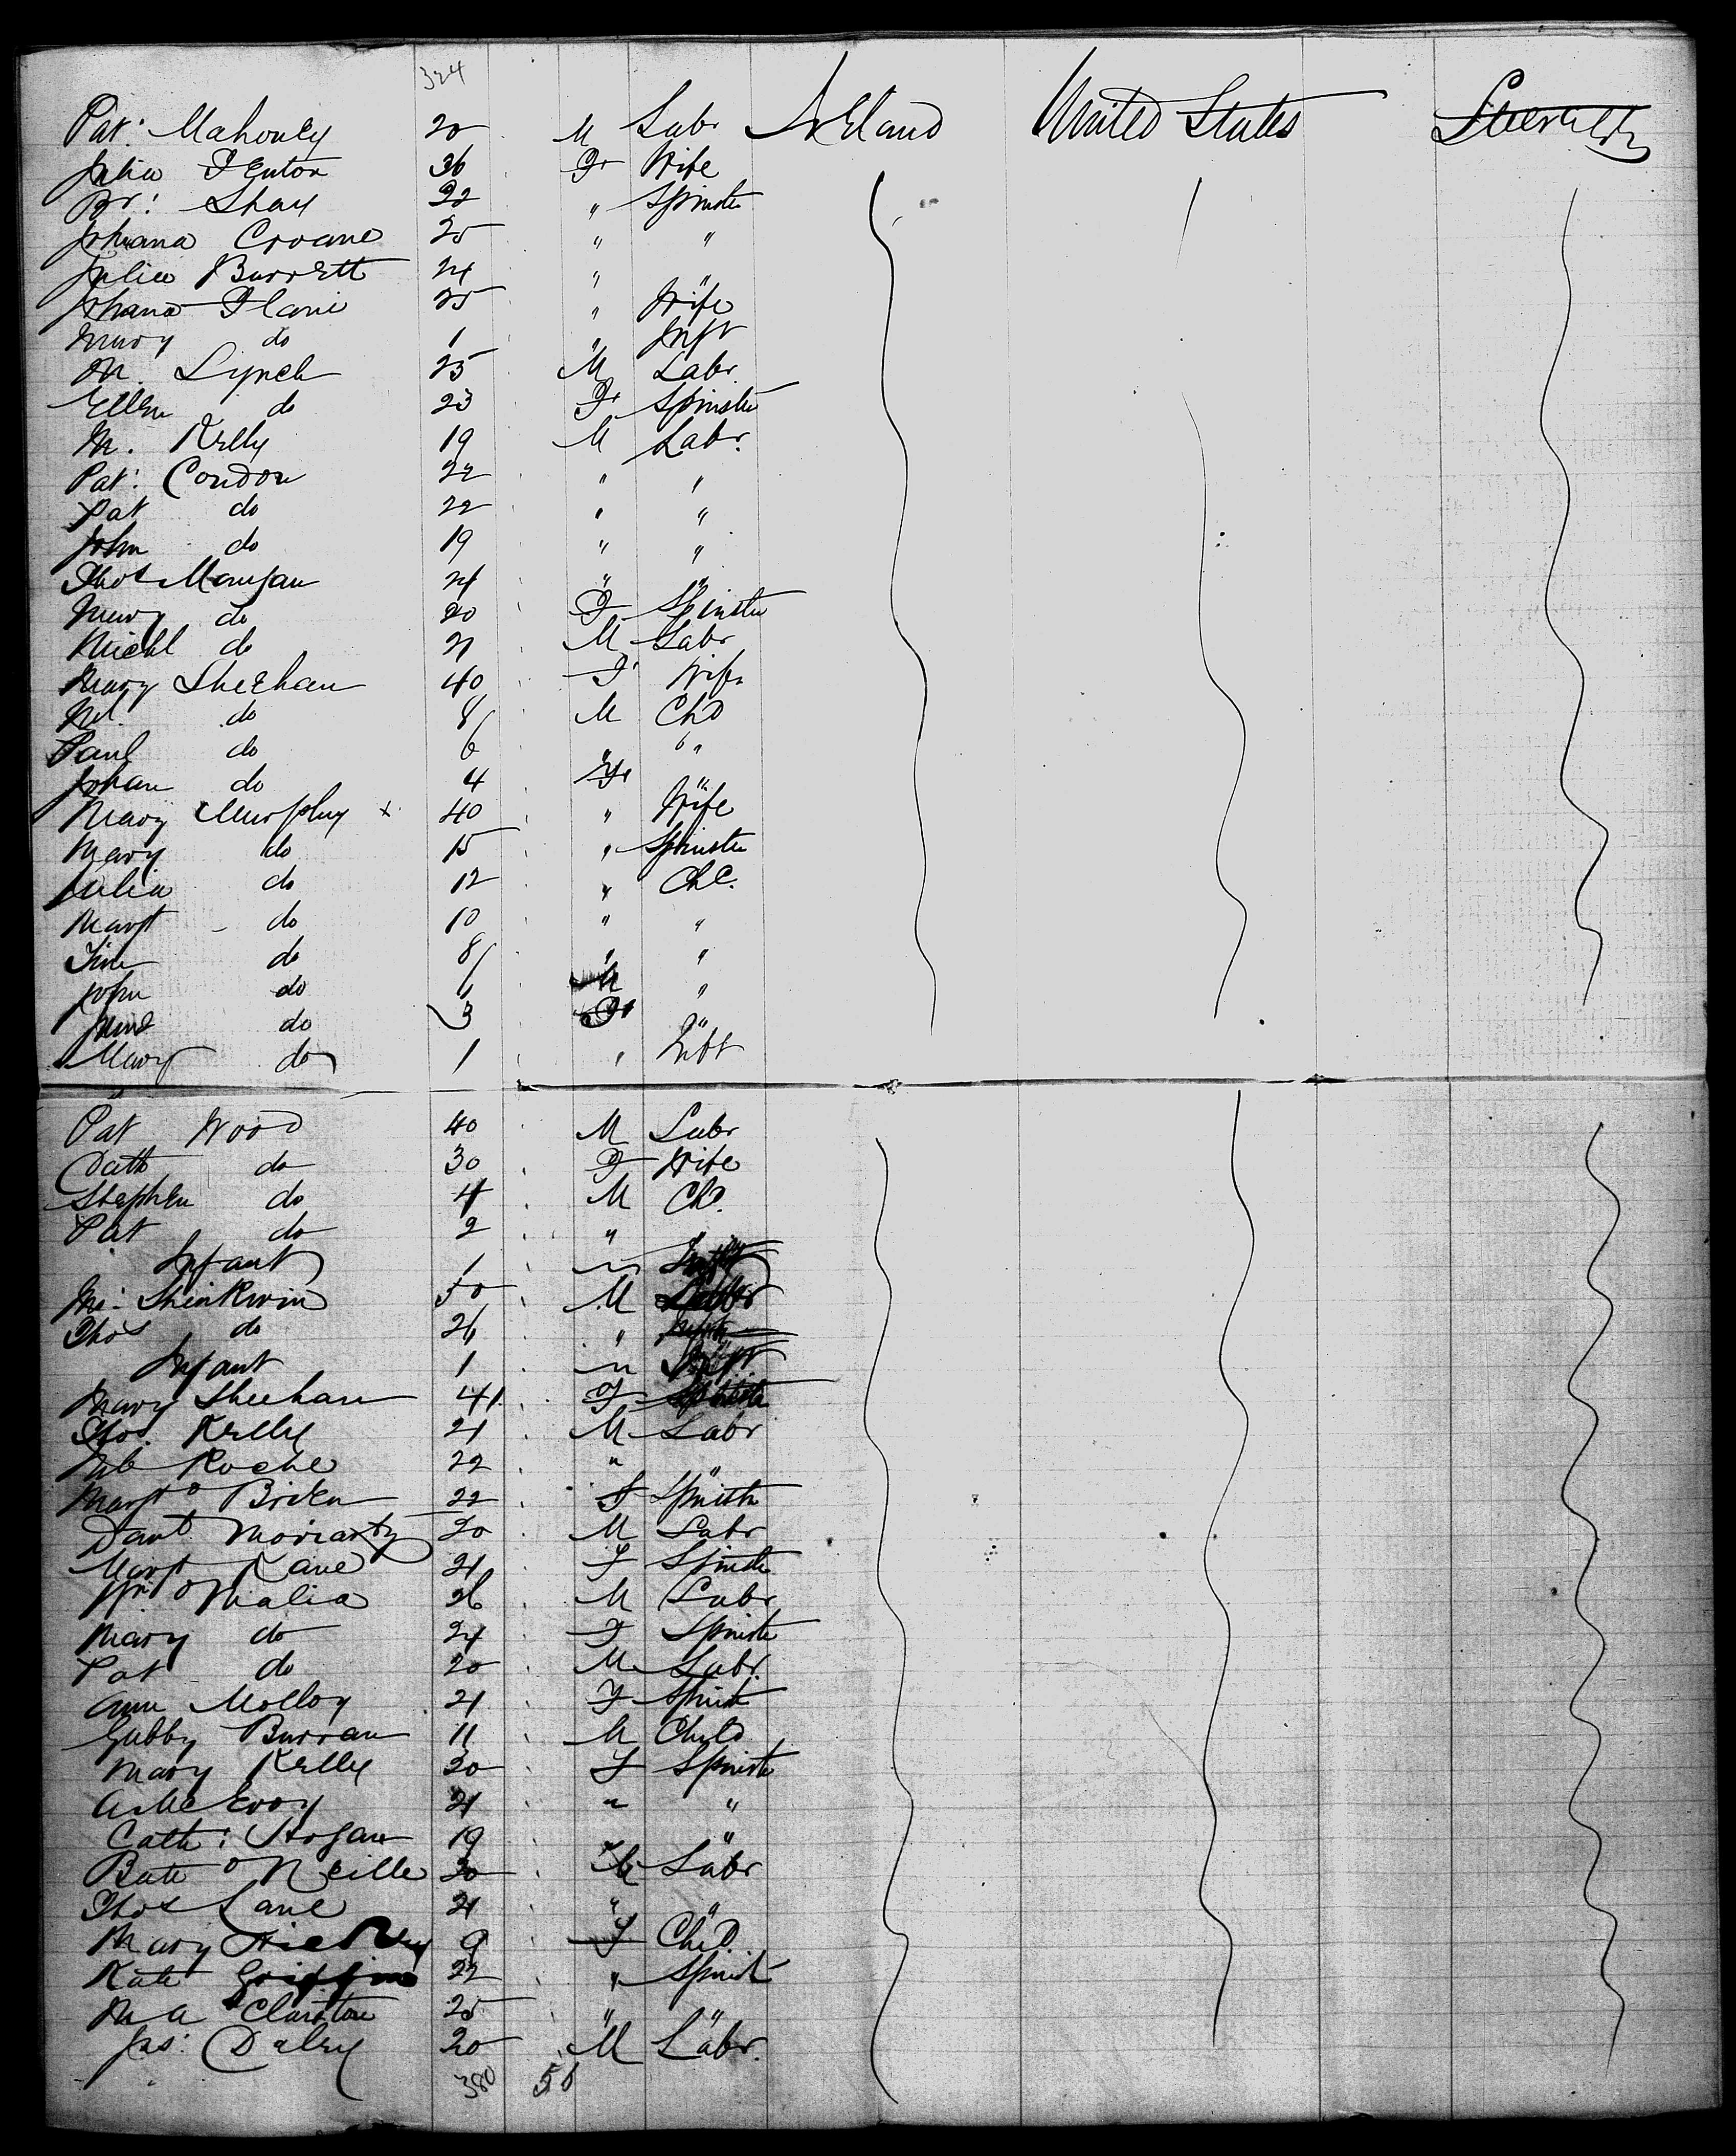 324
Pat: Mahoney 20 M Labr Ireland United States Steerage
Julia Fenton 36 F Wife
Br: Shay 22 " Spinster
Johana Croane 25 " "
Julia Barrett 24 " "
Johana Flani 25 " Wife
Mary do 1 " Inft
M. Lynch 25 M Labr
Ellen do 23 F Spinster
M. Kelly 19 M Labr.
Pat: Condon 22 " "
Pat do 22 " "
John do 19 " "
Thos Mangan 24 " "
Mary do 20 F Spinster
Michl do 21 M Labr
Mary Sheehan 40 F Wife
Ml. do 8 M Chd
Paul do 6 " "
Johan do 4 F "
Mary Murphy x 40 " Wife
Mary do 15 " Spinster
Julia do 12 " Chd.
Margt do 10 " "
Tim do 8 " "
John do M "
do 3 F "
Mary do 1 " Inft
Pat Wood 40 M Labr
Cath do 30 F Wife
Stephen do 4 M Chd.
Pat do 2 " "
Infant 1 "
Shinkwin 50 M Labr
Thos do 26 "
Infant 1 " Inft
Mary Sheehan 41 F
Thos. Kelly 21 M Labr
Roche 22 " "
Margt O Brien 22 F Spinstr
Danl Moriarty 20 M Labr
Margt Kane 21 F Spinstr
Wm O Malia 26 M Labr
Mary do 24 F Spinstr
Pat do 20 M Labr.
Ann Molloy 21 F Spinst
Gubby Burran 11 M Child
Mary Kelly 20 F Spinstr
A McEvoy 21 " "
Cath: Hogan 19 "
Bate O Neille 30 M Labr
Thos Lane 21 " "
Mary 9 F Chd.
Kate Griffin 22 " Spinst
M A Claxton 25 " "
Jas: Daley 20 M Labr.
380 56